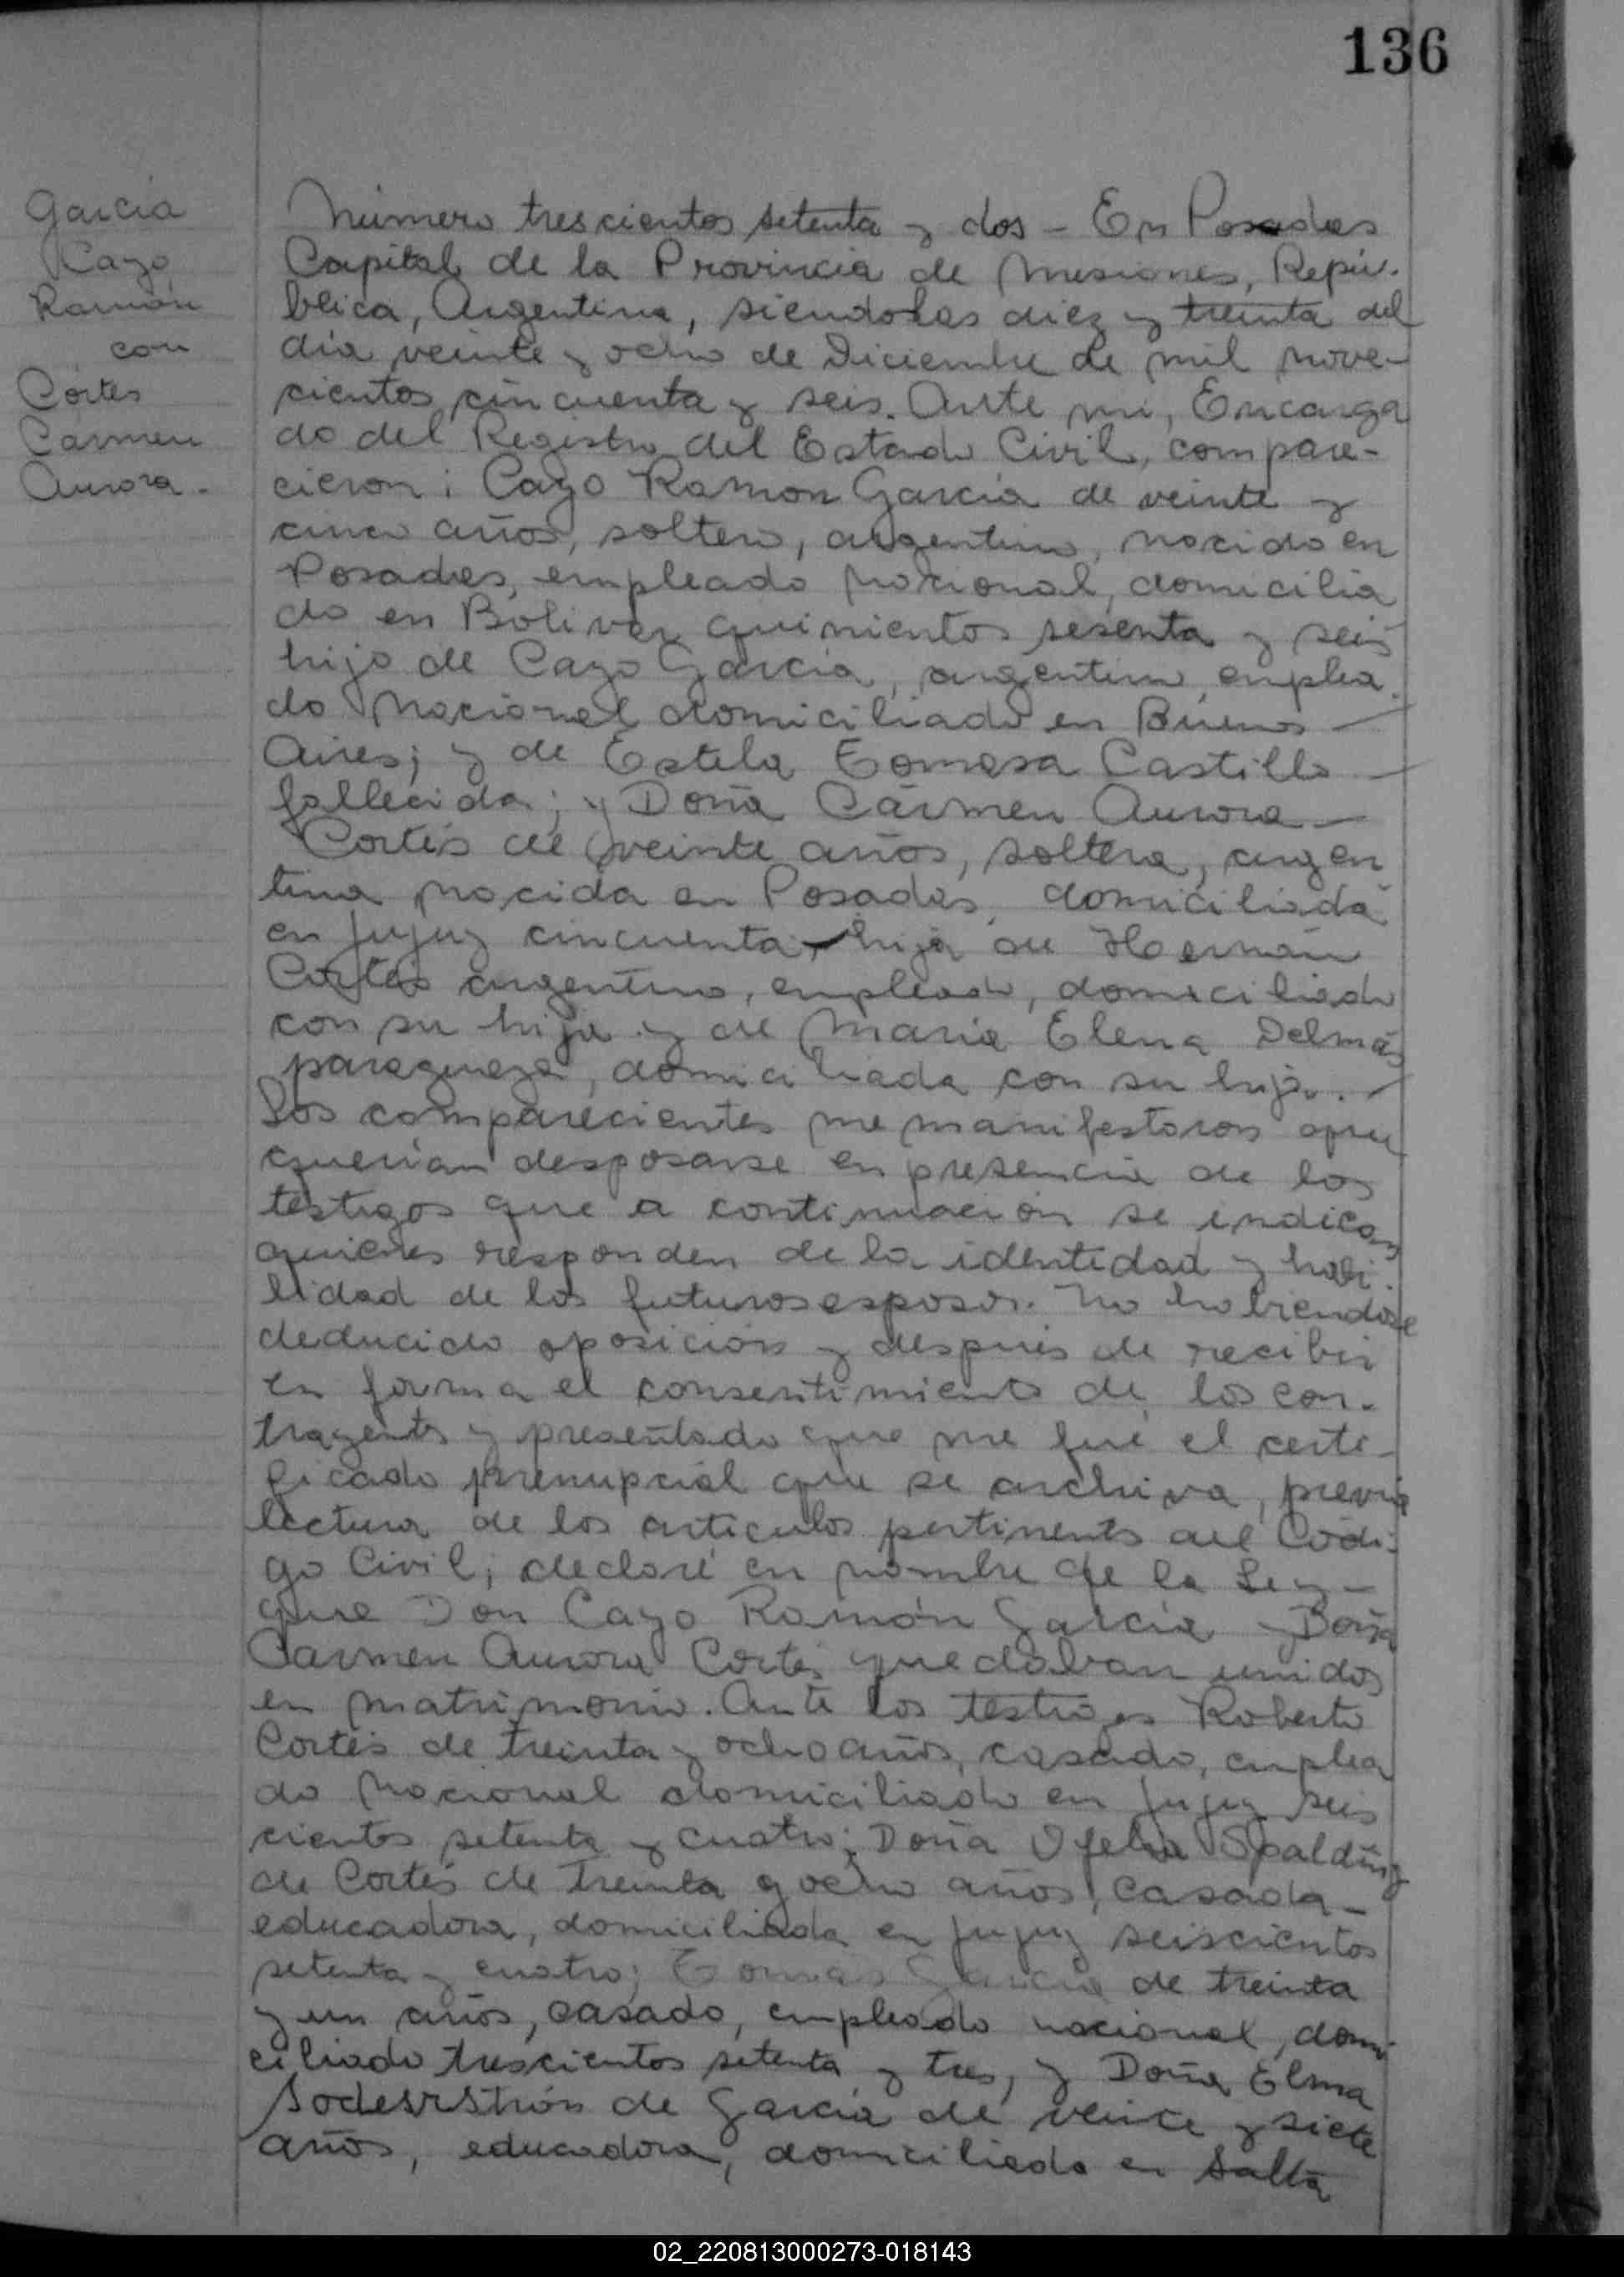 136
García
Cayo
Ramón
con
Cortes
Cármen
Aurora.
Número trescientos setenta y dos - En Posadas
Capital de la Provincia de Misiones, Repú-
blica, Argentina, siendo las diez y treinta del
día veinte y ocho de Diciembre de mil nove-
cientos cincuenta y seis. Ante mi, Encarga
do del Registro del Estado Civil, compare-
cieron: Cayo Ramon García de veinte y
cinco años, soltero, argentino, nacido en
Posadas, empleado Nacional, domicilia
do en Bolivar quinientos sesenta y seis
hijo de Cayo García, argentino, emplea
do Nacional domiciliado en Buenos
Aires; y de Estela Tomasa Castillo
fallecida; y Doña Cármen Aurora
Cortés de veinte años, soltera, argen
tina nacida en Posadas, domiciliada
en Jujuy cincuenta, hija de Hernán
Cortés argentino, empleado, domiciliado
con su hija y de María Elena Delmás
paraguaya, domiciliada con su hija.
Los comparecientes me manifestaron que
querían desposarse en presencia de los
testigos que a continuación se indican
quienes responden de la identidad y habi-
lidad de los futuros esposos. No habiendose
deducido oposición y después de recibir
en forma el consentimiento de los con-
trayentes y presentado que me fué el certi-
ficado prenupcial que se archiva, previa
lectura de los artículos pertinentes del Códi-
go Civil; declaré en nombre de la Ley-
que Don Cayo Ramón García y Doña
Carmen Aurora Cortés quedaban unidos
en matrimonio. Ante los testigos Roberto
Cortés de treinta y ocho años, casado, emplea
do Nacional domiciliado en Jujuy seis
cientos setenta y cuatro; Doña Ofelia Spalding
de Cortés de treinta y ocho años, casada-
educadora, domiciliada en Jujuy seiscientos
setenta y cuatro; Tomas García de treinta
y un años, casado, empleado nacional, domi
ciliado trescientos setenta y tres, y Doña Elma
de García de veinte y siete
años, educadora, domiciliada en Salta
02_220813000273-018143